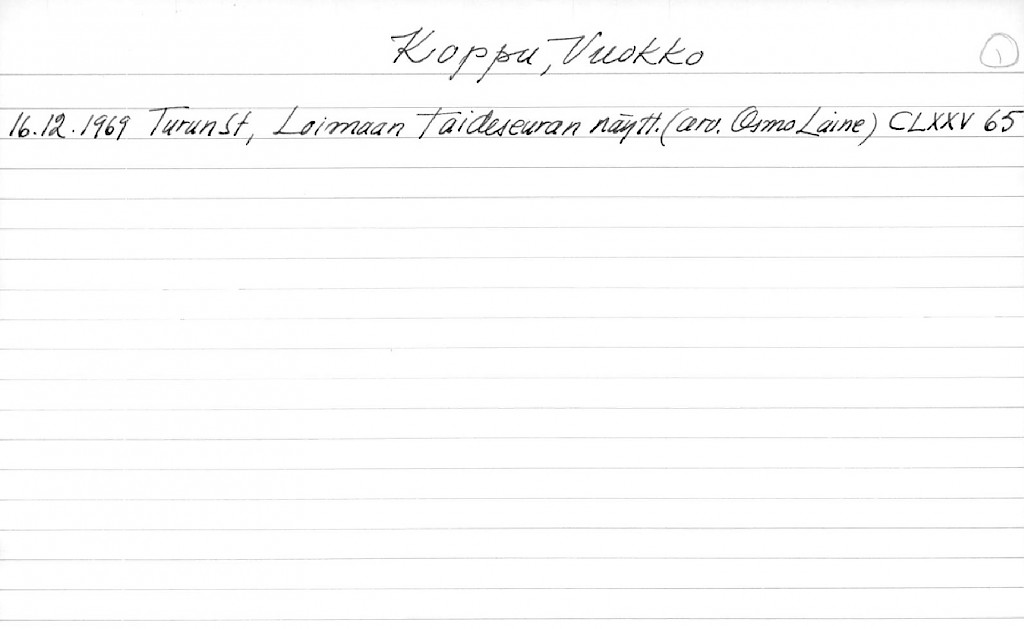 Koppu, Vuokko
1
16.12.1969 Turun St, Loimaan Taideseuran näytt. (arv. Osmo Laine) CLXXV 65